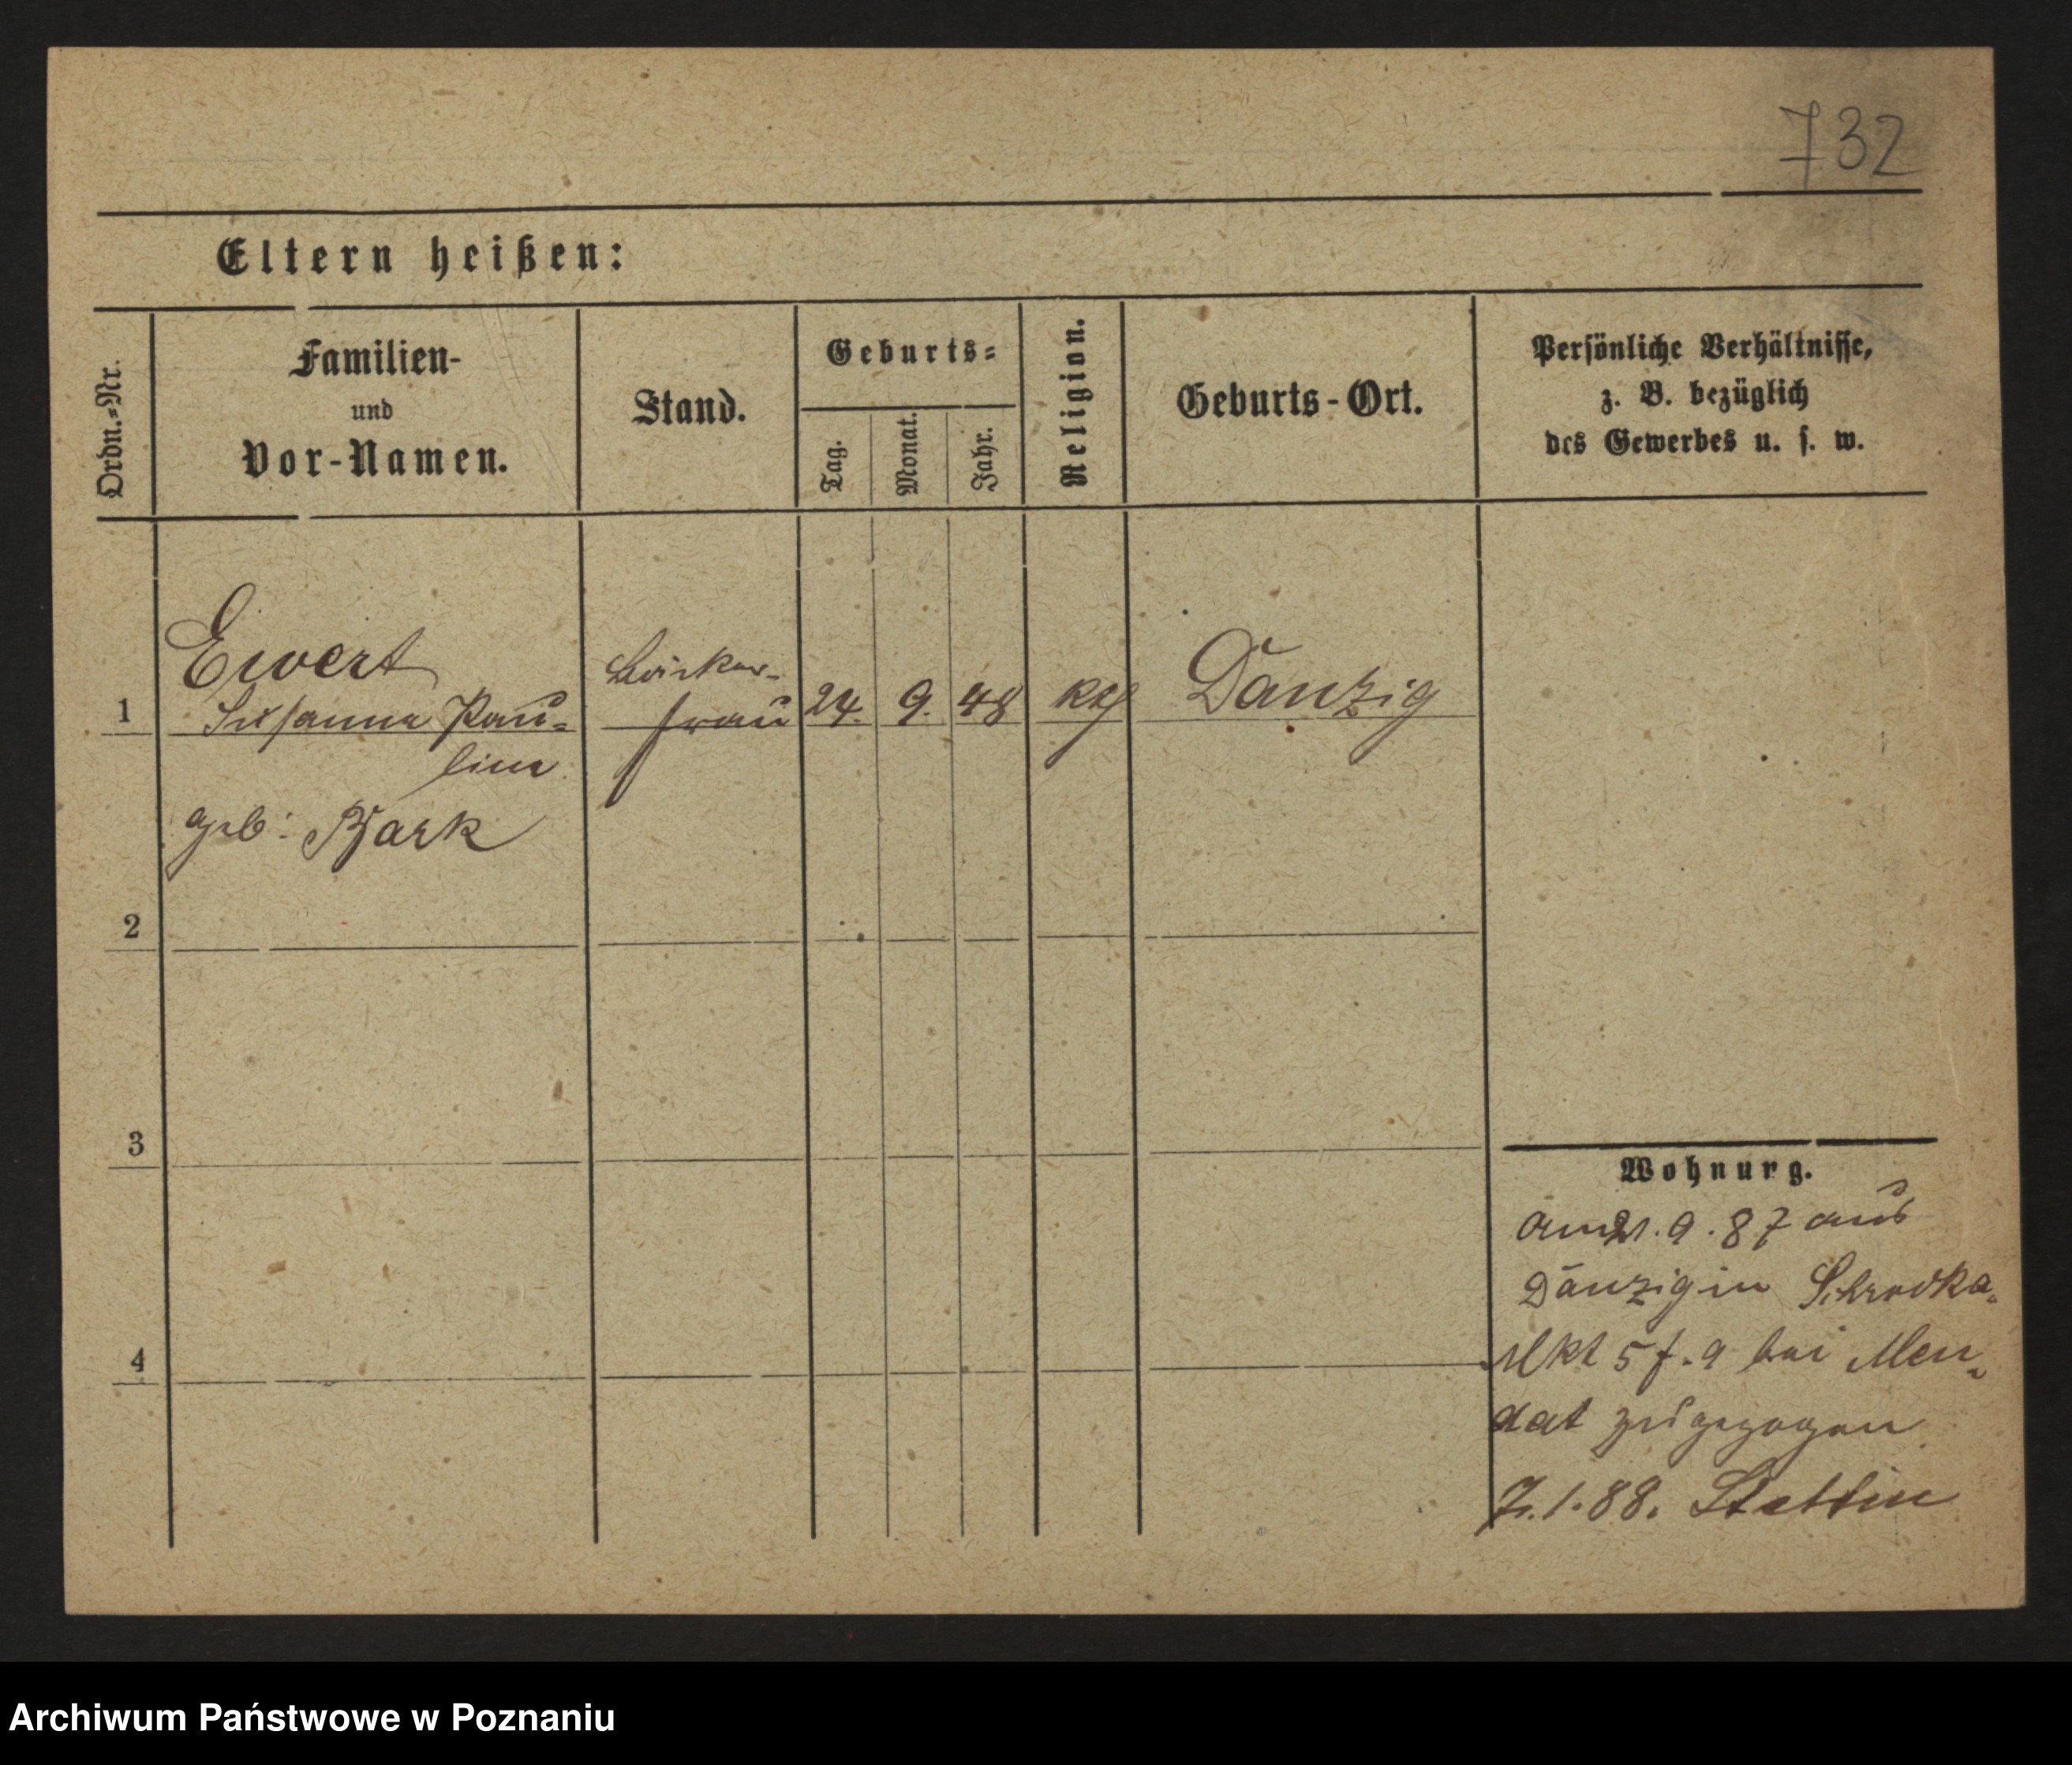 732
Eltern heißen:
Ordn.=Nr.
Familien-
und
Vor-Namen.
Stand.
Geburts=
Tag.
Monat.
Jahr.
Religion.
Geburts-Ort.
Persönliche Verhältnisse,
z. B. bezüglich
des Gewerbes u. s. w.
1
Ewert
Susanna Pau=
line
geb: Bark
frau
24. 9. 48
kth
Danzig
2
3
4
Wohnurg.
am 21.9.87 aus
Danzig in Schrodka=
Mkt 5 f. 9 bei Men=
dat zugezogen
7.1.88. Stettin
Archiwum Państwowe w Poznaniu